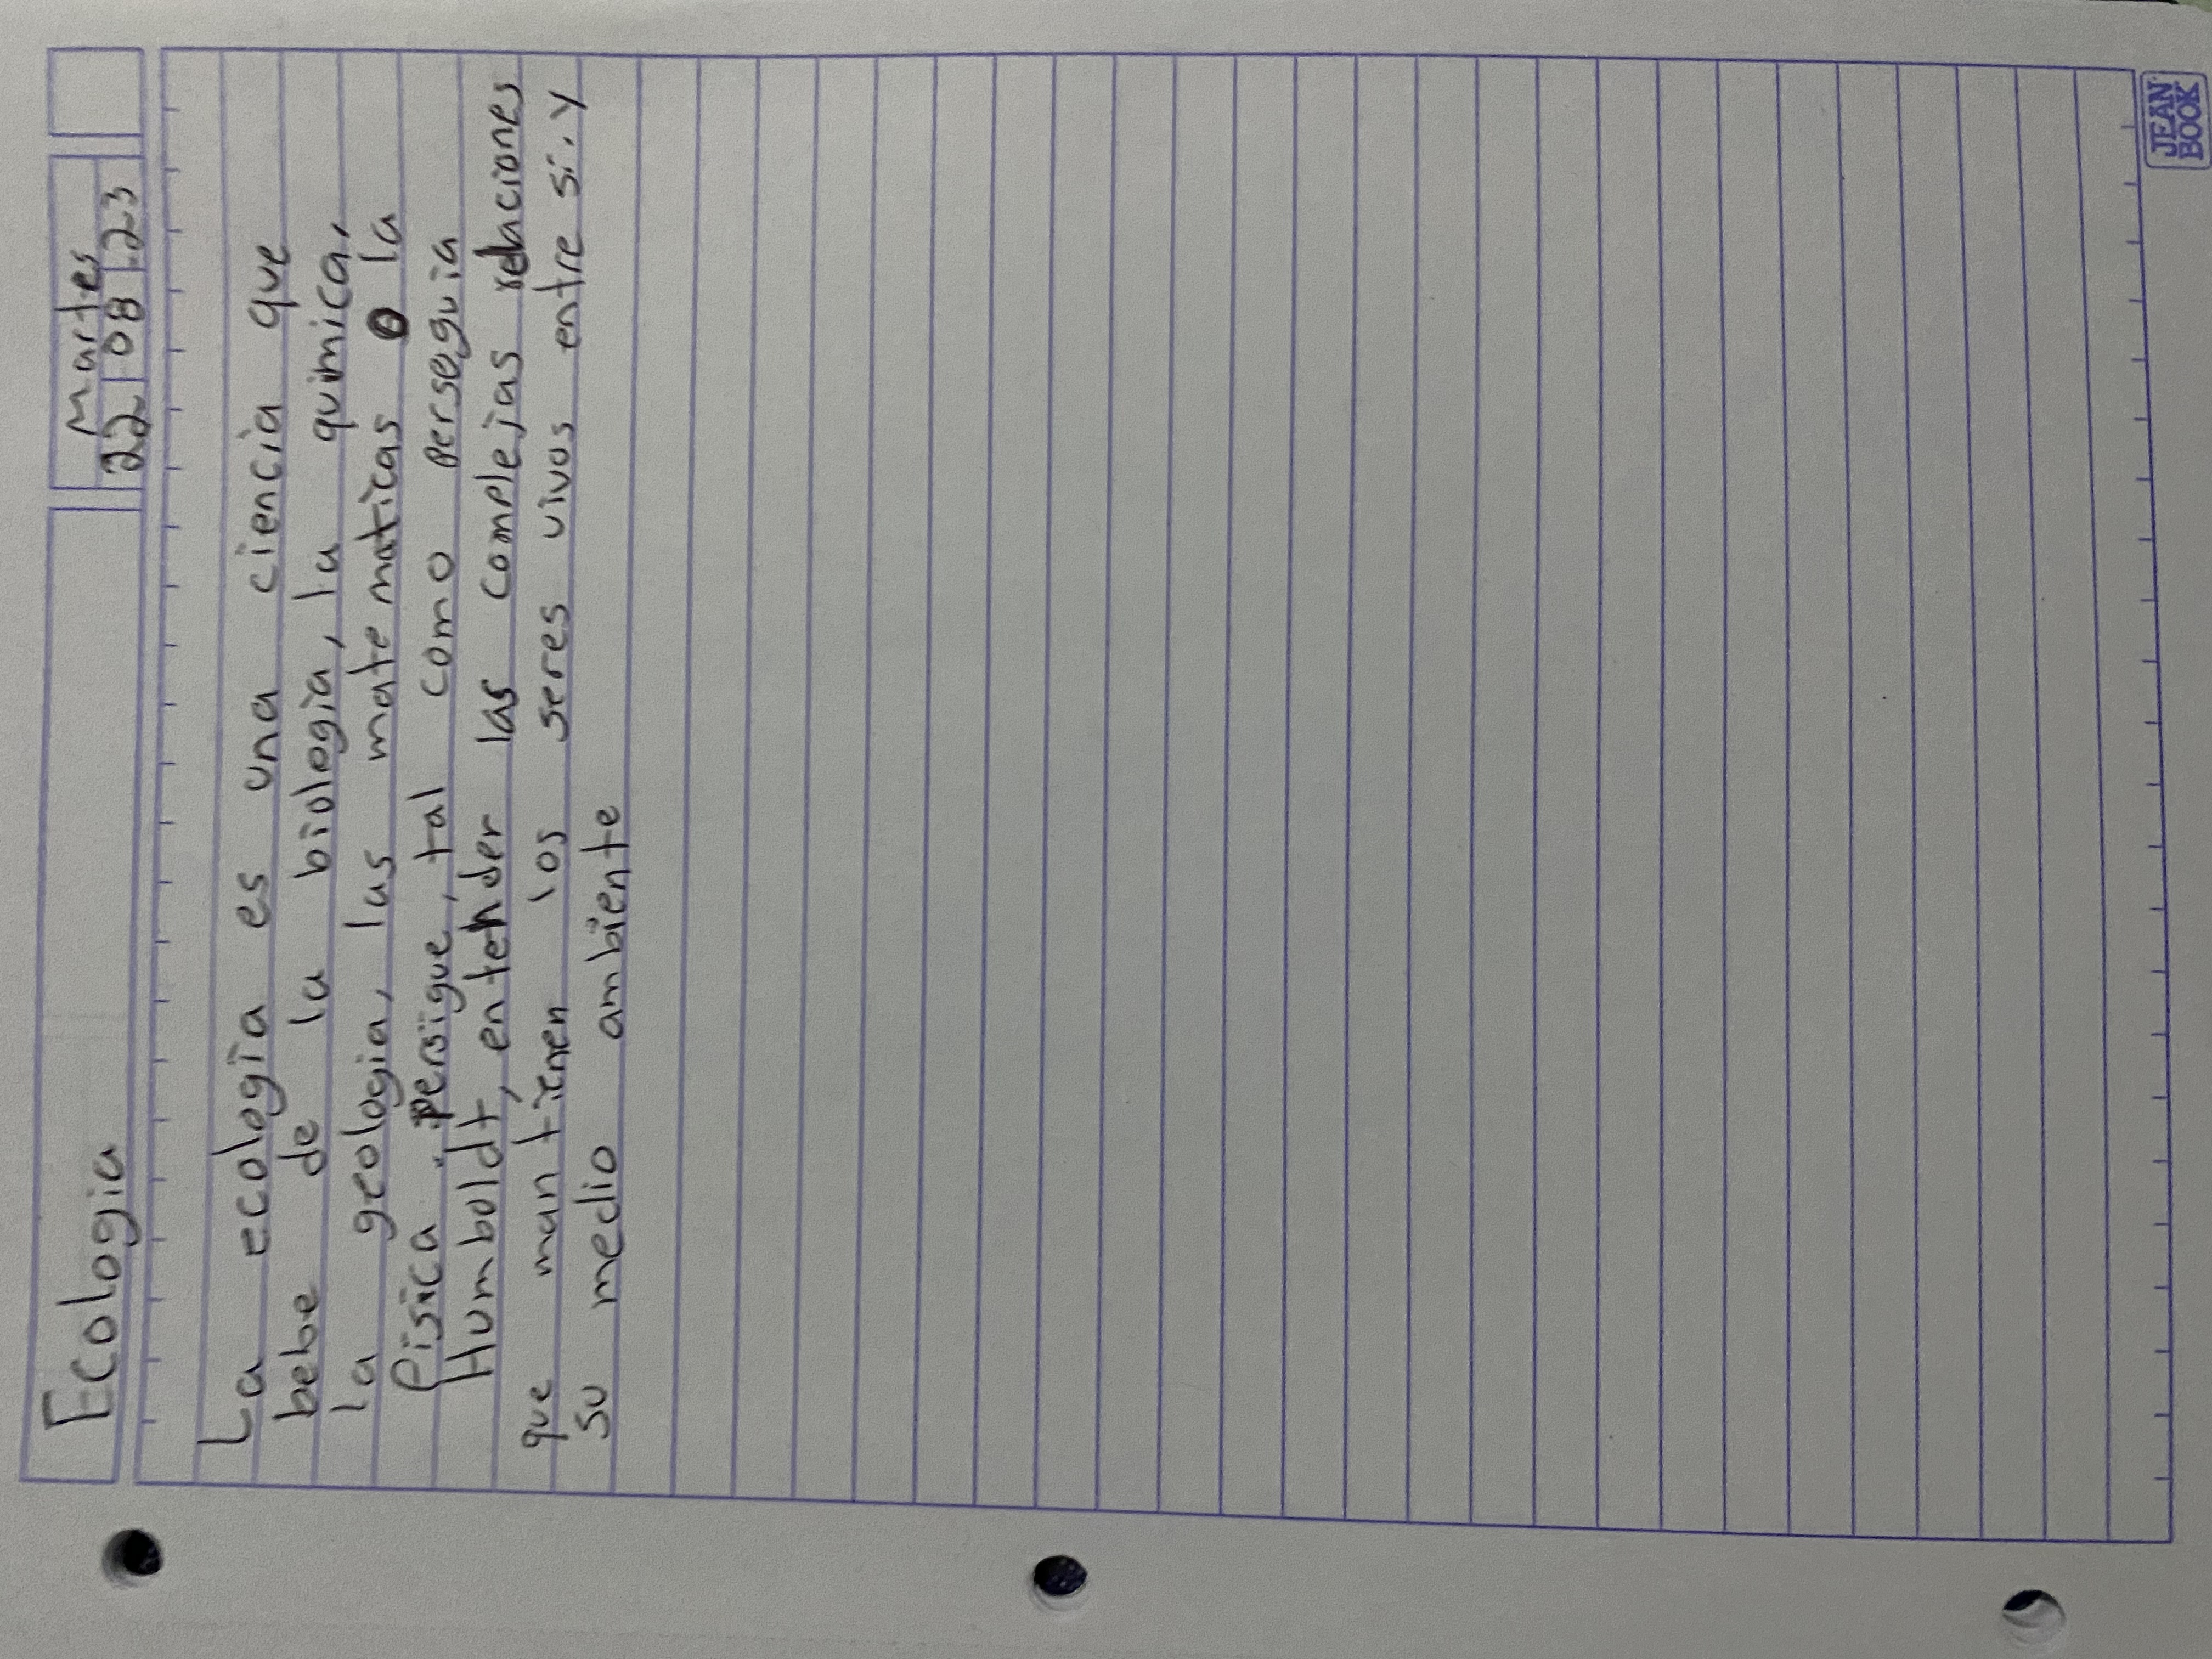 Ecologia
Martes
22 08 23
La ecologia es una ciencia que
bebe de la biologia, la quimica,
la geologia, las matematicas o la
fisica persigue, tal como perseguia
Humboldt, entender las complejas relaciones
que mantienen los seres vivos entre si. y
su medio ambiente
JEAN
BOOK